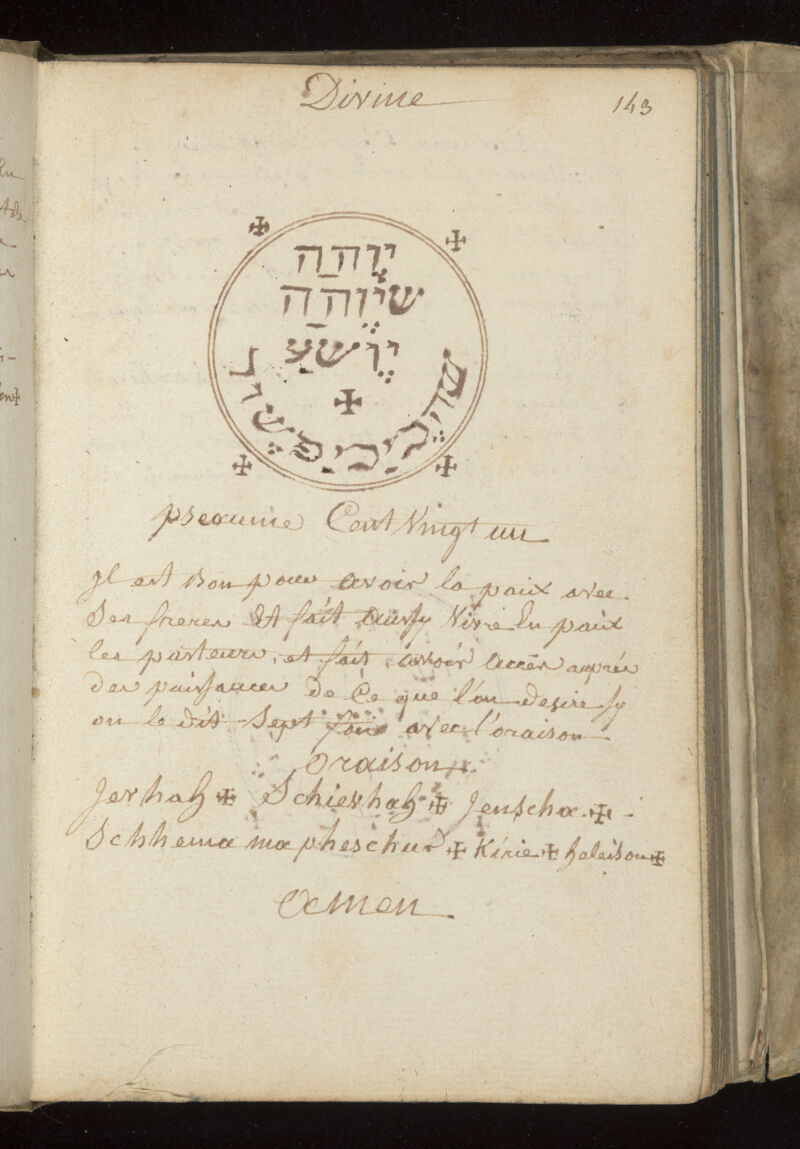 Divine
143
יְוָהַה
שיְוֶהַה
יְוֶשעַ
pseaume Cent Vingt un
Jl est Bon pour avoir la paix avec
Ses freres Et fait aussy Vivre En paix
les pasteurs, et fait avoir accès auprés
des puissances de Ce que l'on desire sy
on le dit Sept fois avec l'oraison
oraison
Jevhah ✠ Schievhah ✠ Jenscha ✠
Schhema mapheschur ✠ Kirie ✠ heleison ✠
Amen